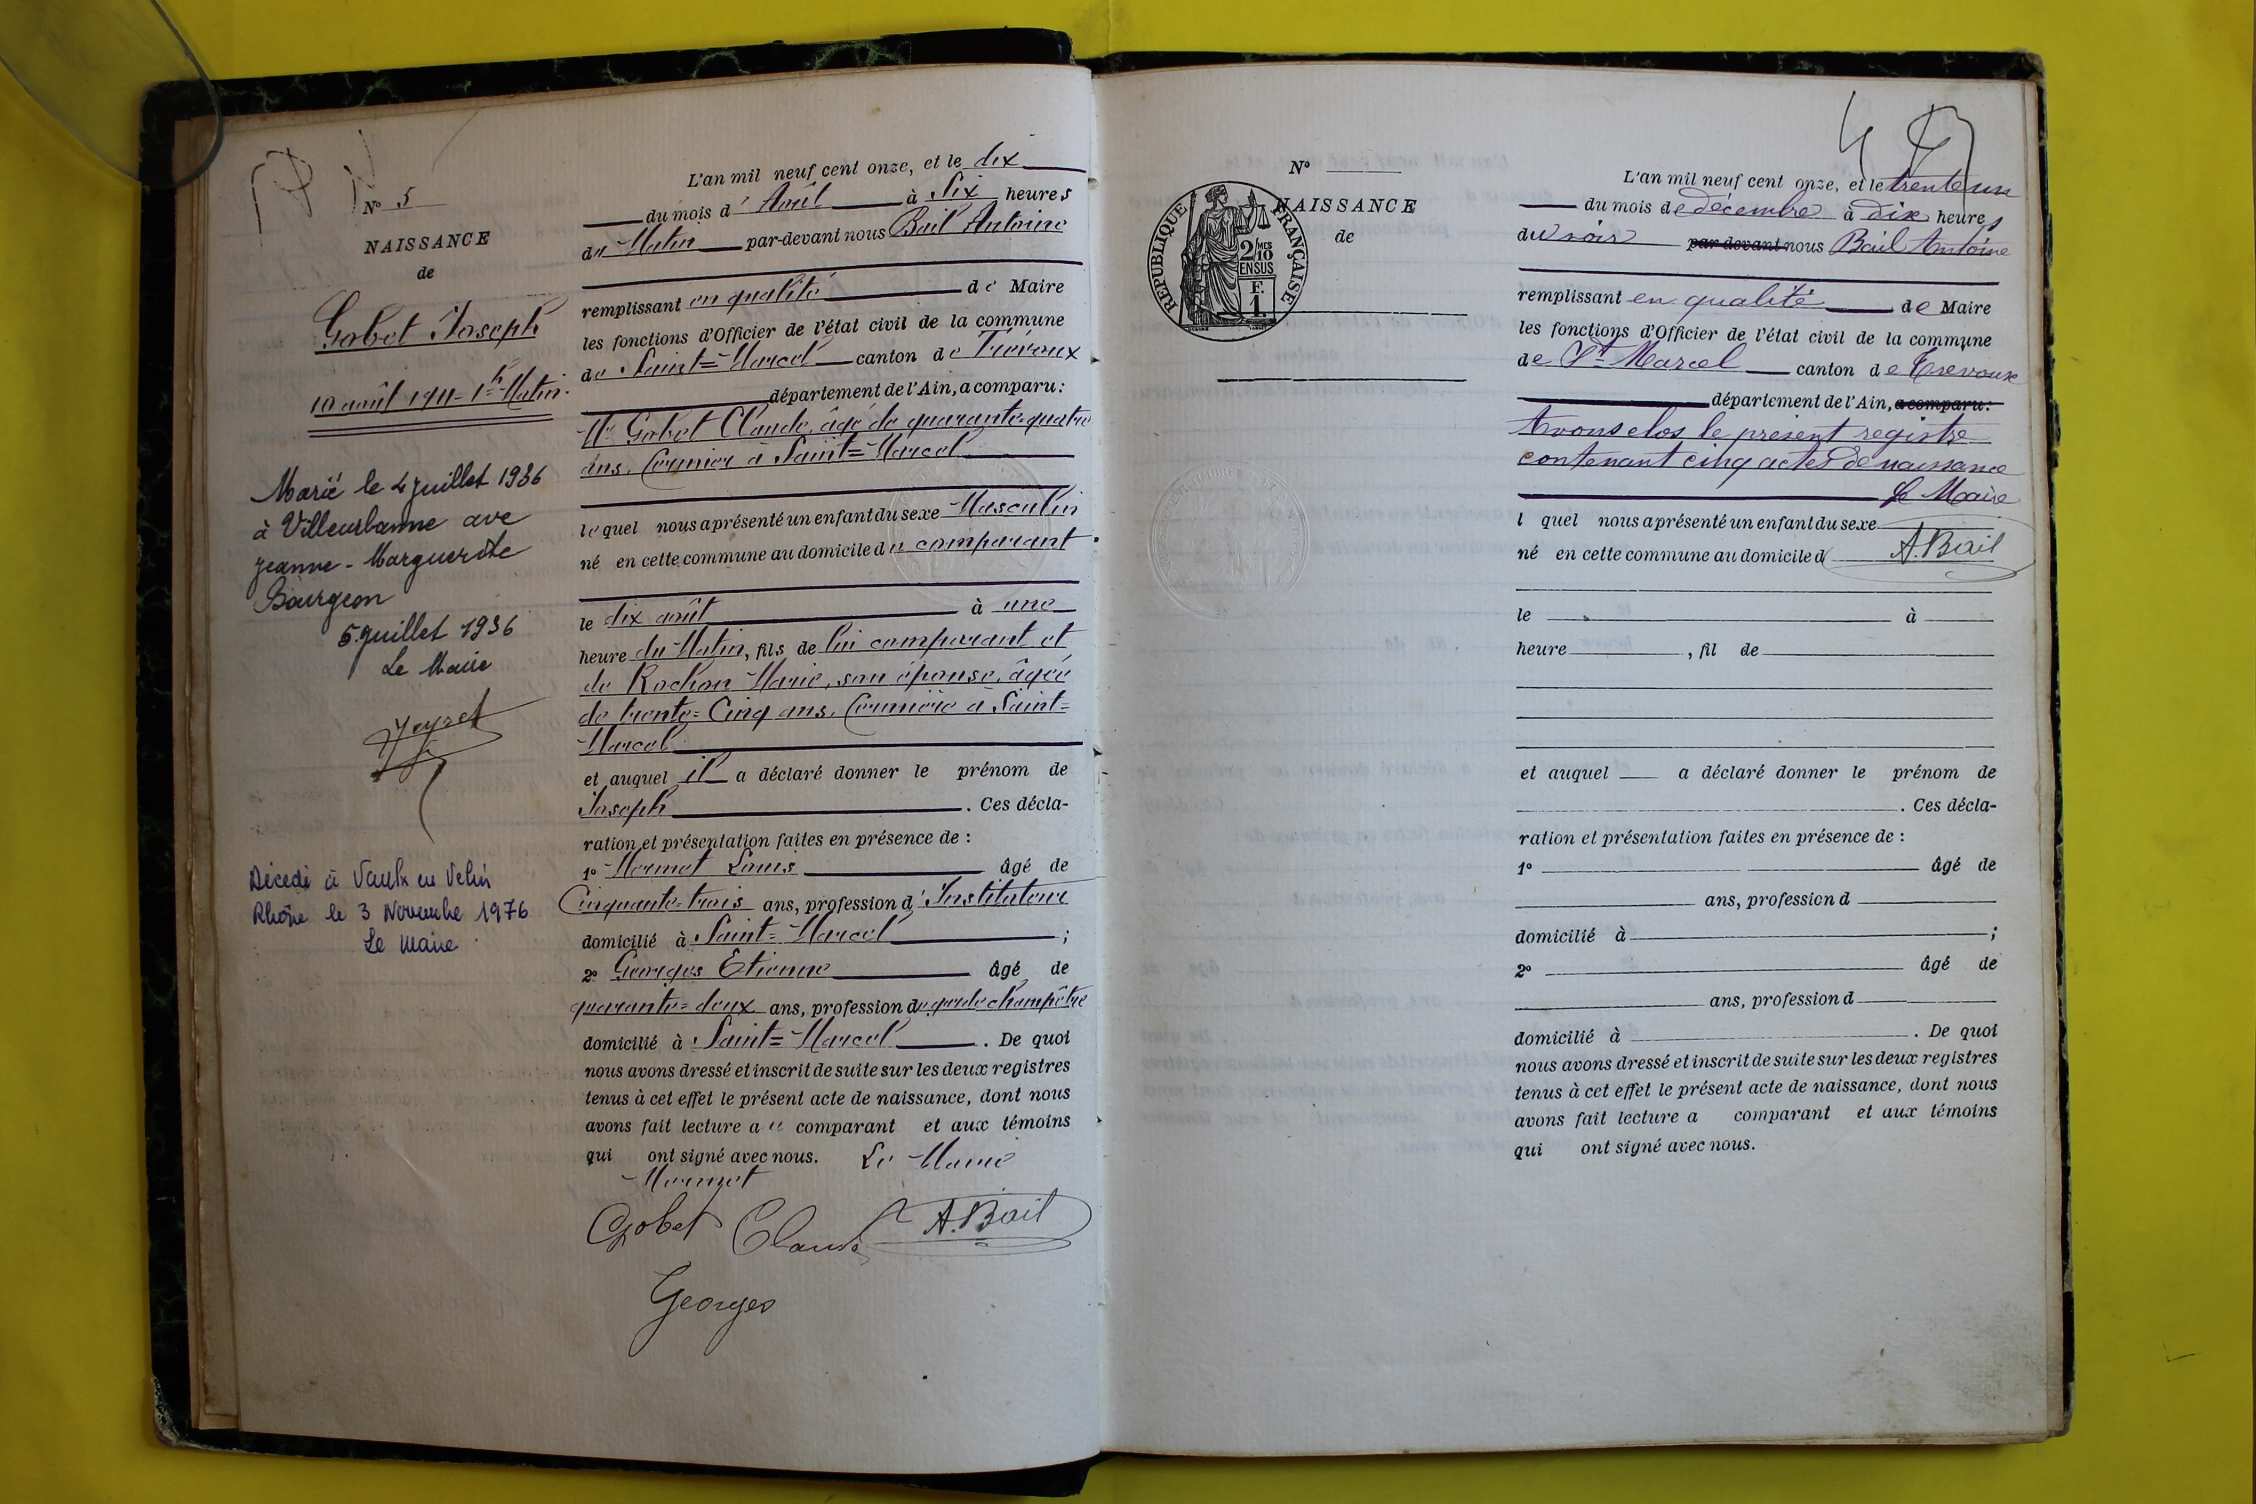 N° 5
NAISSANCE
de
Gobet Joseph
10 août 1911 - 1h Matin.
Marié le 4 juillet 1936
à Villeurbanne ave
Jeanne - Marguerite
Bourgeon
5 juillet 1936
Le Maire
Décédé à Vaulx en Velin
Rhône le 3 Novembre 1976
Le Maire
L'an mil neuf cent onze, et le dix
du mois d'Août à Six heures
du Matin par-devant nous Bail Antoine
remplissant en qualité de Maire
les fonctions d'Officier de l'état civil de la commune
de Saint=Marcel canton de Trévoux
département de l'Ain, a comparu:
Mr Gobet Claude, âgé de quarante=quatre
ans, Fermier à Saint=Marcel
lequel nous a présenté un enfant du sexe Masculin
né en cette commune au domicile du comparant
le dix août à une
heure du Matin, fils de lui comparant et
de Rochon Marie, son épouse, âgée
de trente=Cinq ans, Fermière à Saint=
Marcel
et auquel il a déclaré donner le prénom de
Joseph . Ces décla-
ration et présentation faites en présence de :
1° Mermet Louis âgé de
Cinquante=trois ans, profession d'Instituteur
domicilié à Saint=Marcel ;
2° Georges Etienne âgé de
quarante=deux ans, profession de garde champêtre
domicilié à Saint=Marcel . De quoi
nous avons dressé et inscrit de suite sur les deux registres
tenus à cet effet le présent acte de naissance, dont nous
avons fait lecture au comparant et aux témoins
qui ont signé avec nous. Le Maire
Mermet
Gobet Claude A. Bail
Georges
N°
NAISSANCE
de
RÉPUBLIQUE FRANÇAISE
2 MES
10
EN SUS
F.
1.
L'an mil neuf cent onze, et le trente un
du mois de décembre à dix heures
du soir par devant nous Bail Antoine
remplissant en qualité de Maire
les fonctions d'Officier de l'état civil de la commune
de St Marcel canton de Trevoux
département de l'Ain, a comparu:
Avons clos le présent registre
contenant cinq actes de naissance
Le Maire
l quel nous a présenté un enfant du sexe
A. Bail
né en cette commune au domicile d
le à
heure , fil de
et auquel a déclaré donner le prénom de
. Ces décla-
ration et présentation faites en présence de :
1° âgé de
ans, profession d
domicilié à ;
2° âgé de
ans, profession d
domicilié à . De quoi
nous avons dressé et inscrit de suite sur les deux registres
tenus à cet effet le présent acte de naissance, dont nous
avons fait lecture a comparant et aux témoins
qui ont signé avec nous.